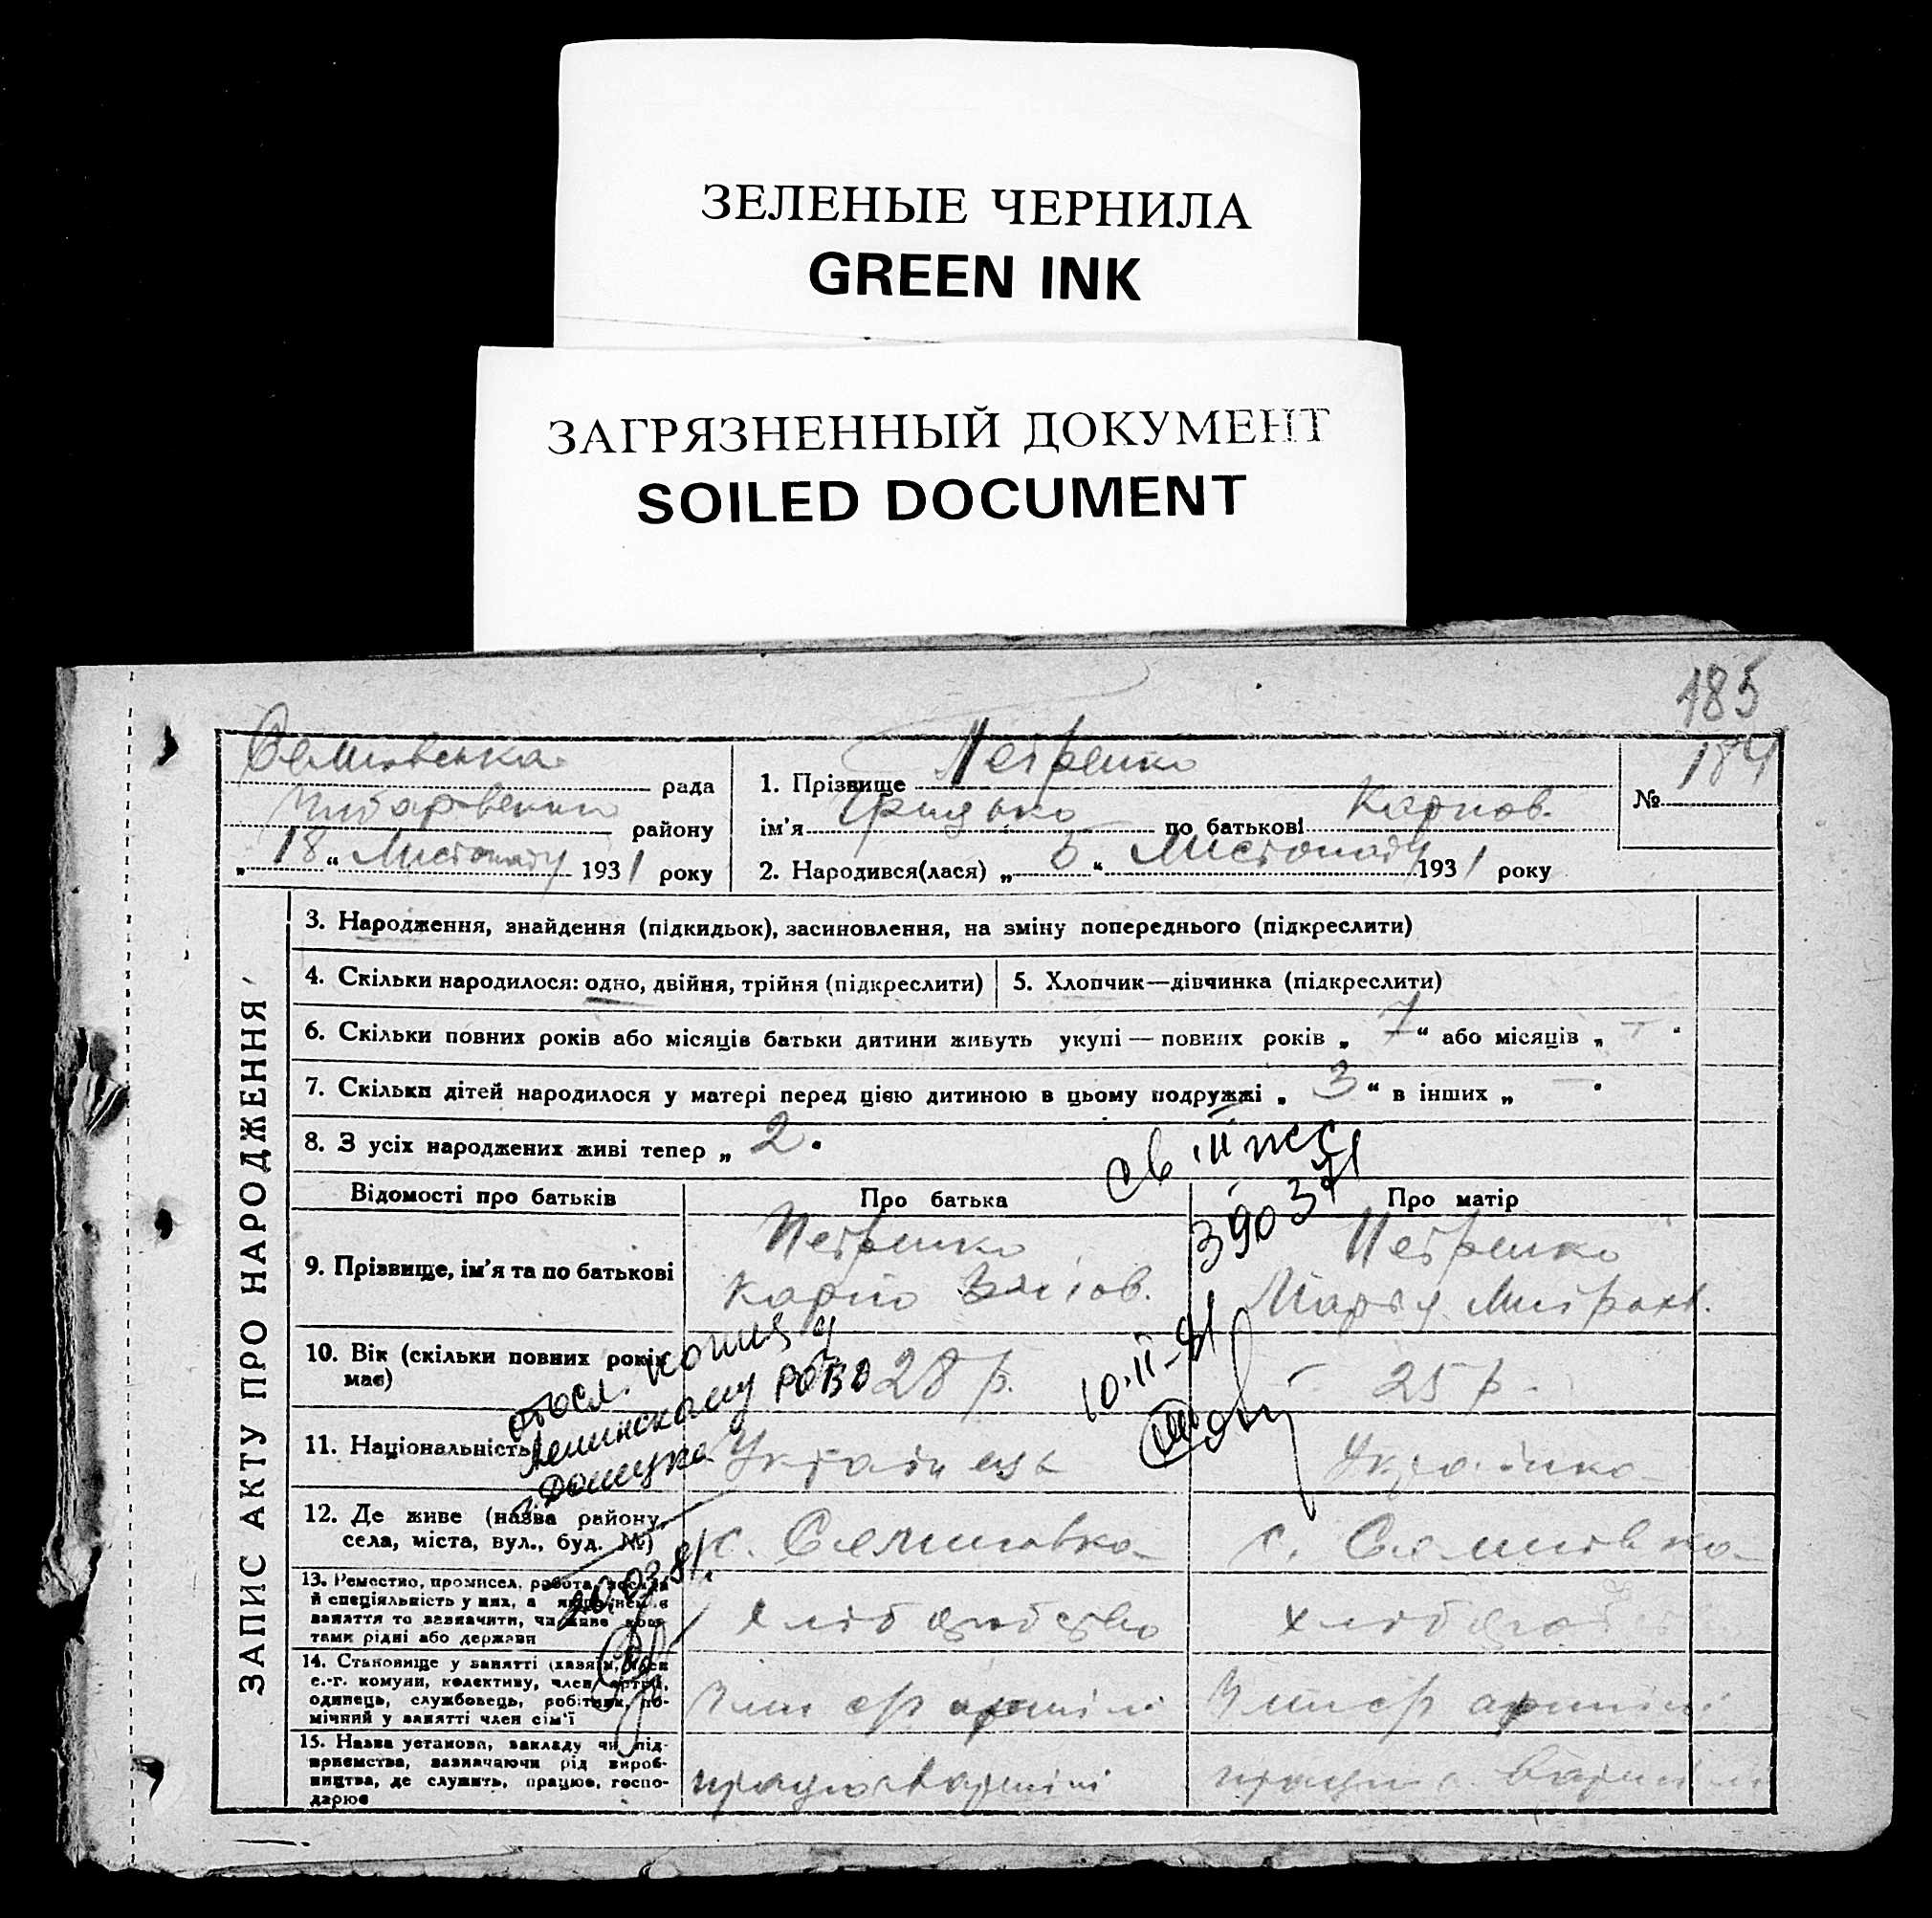 ЗЕЛЕНЫЕ ЧЕРНИЛА
GREEN INK
ЗАГРЯЗНЕННЫЙ ДОКУМЕНТ
SOILED DOCUMENT
185
184
Семшовська рада
району
„18“ Листопаду 1931 року
1. Прізвище Петренко
ім'я Грицько по батькові Карпов.
№
2. Народився(лася) „5“ Листопаду 1931 року
ЗАПИС АКТУ ПРО НАРОДЖЕННЯ
3. Народження, знайдення (підкидьок), засиновлення, на зміну попереднього (підкреслити)
4. Скільки народилося: одно, двійня, трійня (підкреслити)
5. Хлопчик—дівчинка (підкреслити)
6. Скільки повних років або місяців батьки дитини живуть укупі — повних років „7“ або місяців „ — “
7. Скільки дітей народилося у матері перед цією дитиною в цьому подружжі „3“ в інших „ — “
8. З усіх народжених живі тепер „2.
Св. ІІ
390371
Відомості про батьків
Про батька
Про матір
9. Прізвище, ім'я та по батькові
Петренко
Карпо
Петренко
Марія Митроф.
10. Вік (скільки повних років має)
28 р.
25 р.
10.II-81
отосл. копия у
Ленинскому РОВД
г. Донецка
20.03.81.
11. Національність
Українець
Українка
12. Де живе (назва району, села, міста, вул., буд. №)
с. Семшовка
с. Семшовка
13. Ремество, промисел, робота, посада
й спеціяльність у них, а якщо нема
заняття то зазначити, чи живе кош-
тами рідні або держави
хліборобство
хлібороб
14. Становище у занятті (хазяїн, член
с.-г. комуни, колективу, член артілі,
одинець, службовець, робітник, по-
мічний у занятті член сім'ї
Член с/г артілі
Член с/г артілі
15. Назва установи, закладу чи під-
приємства, зазначаючи рід вироб-
ництва, де служить, працює, госпо-
дарює
працює в артілі
працює в артілі